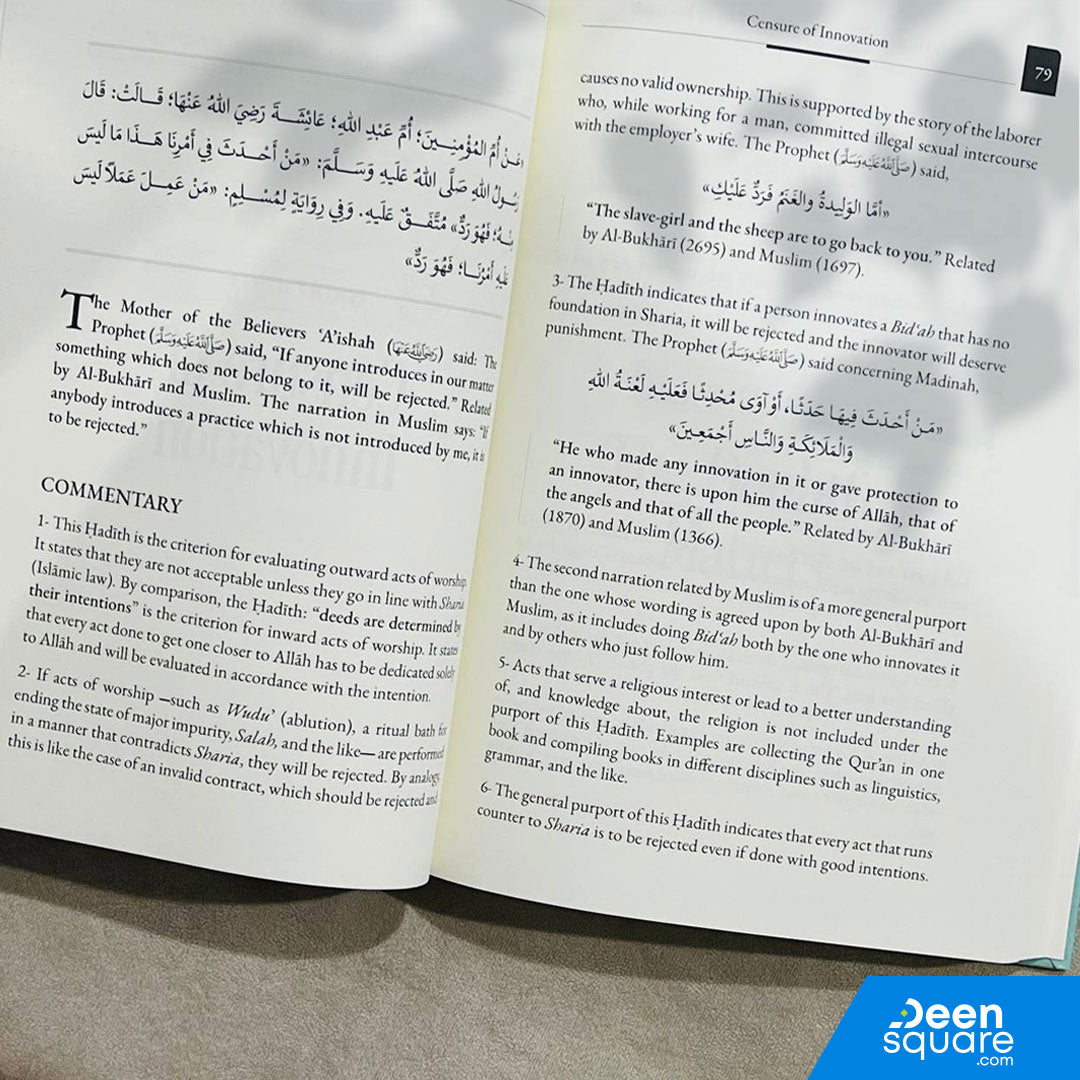 عَنْ أُمِّ المُؤْمِنِينَ؛ أُمِّ عَبْدِ اللهِ؛ عَائِشَةَ رَضِيَ اللهُ عَنْهَا؛ قَالَتْ: قَالَ
رَسُولُ اللهِ صَلَّى اللهُ عَلَيهِ وَسَلَّمَ: «مَنْ أَحْدَثَ فِي أَمْرِنَا هَذَا مَا لَيسَ
مِنْهُ؛ فَهُوَ رَدٌّ» مُتَّفَقٌ عَلَيهِ. وَفِي رِوَايَةٍ لِمُسْلِمٍ: «مَنْ عَمِلَ عَمَلاً لَيسَ
عَلَيهِ أَمْرُنَا؛ فَهُوَ رَدٌّ»
The Mother of the Believers ‘A’ishah (رَضِيَ اللهُ عَنْهَا) said: The
Prophet (صَلَّى اللهُ عَلَيْهِ وَسَلَّمَ) said, “If anyone introduces in our matter
something which does not belong to it, will be rejected.” Related
by Al-Bukhārī and Muslim. The narration in Muslim says: “If
anybody introduces a practice which is not introduced by me, it is
to be rejected.”
COMMENTARY
1- This Ḥadīth is the criterion for evaluating outward acts of worship.
It states that they are not acceptable unless they go in line with Sharia
(Islāmic law). By comparison, the Ḥadīth: “deeds are determined by
their intentions” is the criterion for inward acts of worship. It states
that every act done to get one closer to Allāh has to be dedicated solely
to Allāh and will be evaluated in accordance with the intention.
2- If acts of worship –such as Wudu’ (ablution), a ritual bath for
ending the state of major impurity, Salah, and the like— are performed
in a manner that contradicts Sharia, they will be rejected. By analogy,
this is like the case of an invalid contract, which should be rejected and
Censure of Innovation
79
causes no valid ownership. This is supported by the story of the laborer
who, while working for a man, committed illegal sexual intercourse
with the employer’s wife. The Prophet (صَلَّى اللهُ عَلَيْهِ وَسَلَّمَ) said,
«أَمَّا الوَلِيدةُ والغَنَمُ فَرَدٌّ عَلَيْكِ»
“The slave-girl and the sheep are to go back to you.” Related
by Al-Bukhārī (2695) and Muslim (1697).
3- The Ḥadīth indicates that if a person innovates a Bid‘ah that has no
foundation in Sharia, it will be rejected and the innovator will deserve
punishment. The Prophet (صَلَّى اللهُ عَلَيْهِ وَسَلَّمَ) said concerning Madinah,
«مَنْ أَحْدَثَ فِيهَا حَدَثًا، أَوْ آوَى مُحْدِثًا فَعَلَيْهِ لَعْنَةُ اللهِ
وَالْمَلَائِكَةِ وَالنَّاسِ أَجْمَعِينَ»
“He who made any innovation in it or gave protection to
an innovator, there is upon him the curse of Allāh, that of
the angels and that of all the people.” Related by Al-Bukhārī
(1870) and Muslim (1366).
4- The second narration related by Muslim is of a more general purport
than the one whose wording is agreed upon by both Al-Bukhārī and
Muslim, as it includes doing Bid‘ah both by the one who innovates it
and by others who just follow him.
5- Acts that serve a religious interest or lead to a better understanding
of, and knowledge about, the religion is not included under the
purport of this Ḥadīth. Examples are collecting the Qur’an in one
book and compiling books in different disciplines such as linguistics,
grammar, and the like.
6- The general purport of this Ḥadīth indicates that every act that runs
counter to Sharia is to be rejected even if done with good intentions.
Deen
square
.com